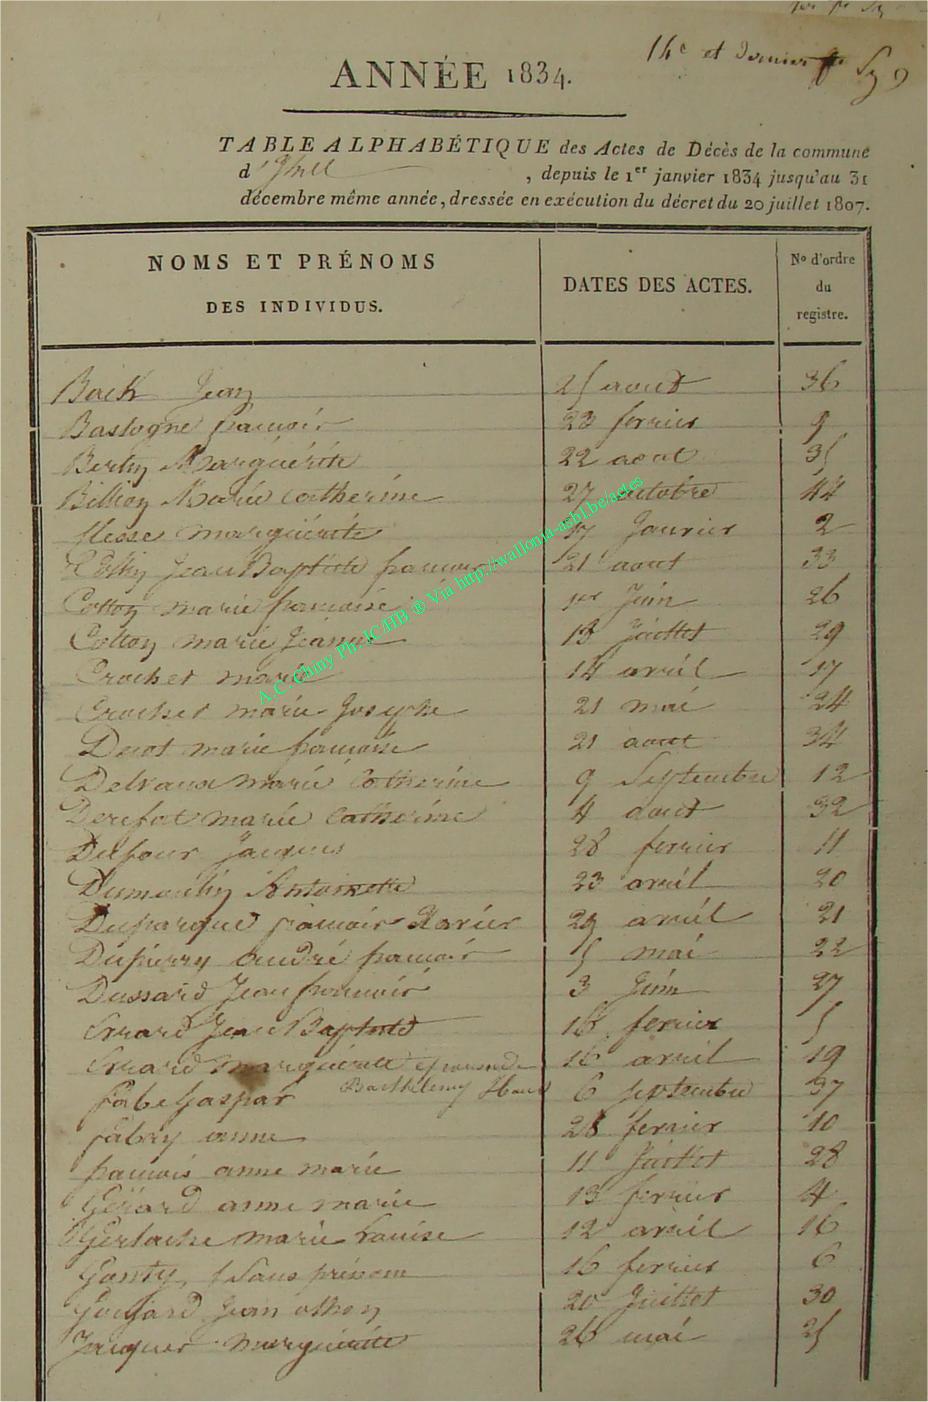 14e et dernier
ANNÉE 1834.
TABLE ALPHABÉTIQUE des Actes de Décès de la commune
d' , depuis le 1er janvier 1834 jusqu'au 31
décembre même année, dressée en exécution du décret du 20 juillet 1807.
NOMS ET PRÉNOMS DES INDIVIDUS. DATES DES ACTES. No d'ordre du registre.
Back Jean 25 aout 36
Bastogne francois 23 fevrier 9
Marguerite 22 aout 35
Billion Marie Catherine 27 octobre 44
marguerite 17 Janvier 2
Jean Baptiste francois 21 aout 33
Cotton marie francoise 1er Juin 26
Cotton marie Jeanne 13 Juillet 29
Crochet marie 14 avril 17
Crochet marie Josephe 21 mai 24
marie francoise 21 aout 34
Delvaux marie Catherine 9 Septembre 12
marie Catherine 4 aout 32
Dufour Jacques 28 fevrier 11
Dumoulin Antoinette 23 avril 20
Duparque francois Xavier 29 avril 21
Dupierry andré francois 5 mai 22
Dussard Jean francois 3 Juin 27
Evrard Jean Baptiste 16 fevrier 5
Evrard marguerite 16 avril 19
Barthlemy
fabe Gaspar 6 septembre 37
fabry anne 28 fevrier 10
francois anne marie 11 Juillet 28
Gérard anne marie 13 fevrier 4
Gerlache marie Louise 12 avril 16
Gonty, sans prénom 16 fevrier 6
Jean 20 Juillet 30
Jacques marguerite 26 mai 25
A.C. Chiny Ph. JC/HB ® Via http://wallonia-asbl.be/actes